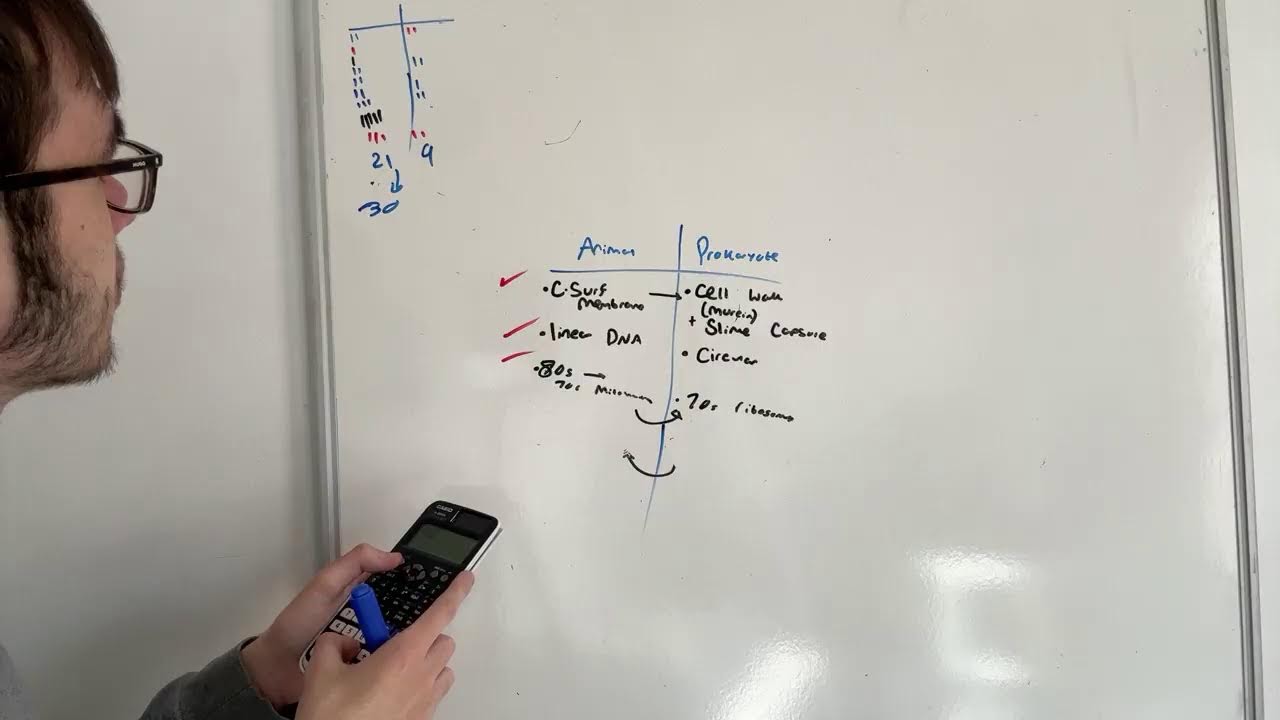 21 9
30
Animal Prokaryote
• C. Surf Membrane → • Cell Wall
(murein)
+ Slime Capsule
• linear DNA
• Circular
• 80s →
70s
• 70s ribosome
CASIO
HUGO